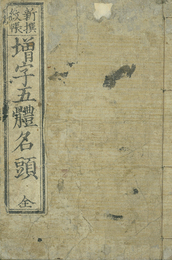 新撰
紋帳
増字五體名頭
全